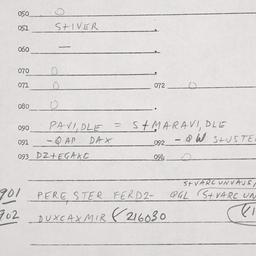 050 0
051 STIVER
060 —
070 0
071 0 072 0
080 0
090 PAVI,DLE = S+MARAVI,DLE
091 -QAP DAX 092 -QW S+USTE
093 DZ+EGAKC 094 0
S+VARCUNVAUS,
901 PERE,STER FERD2- QGL (S+VARC UN
902 DUXCAXMIR ( 216030